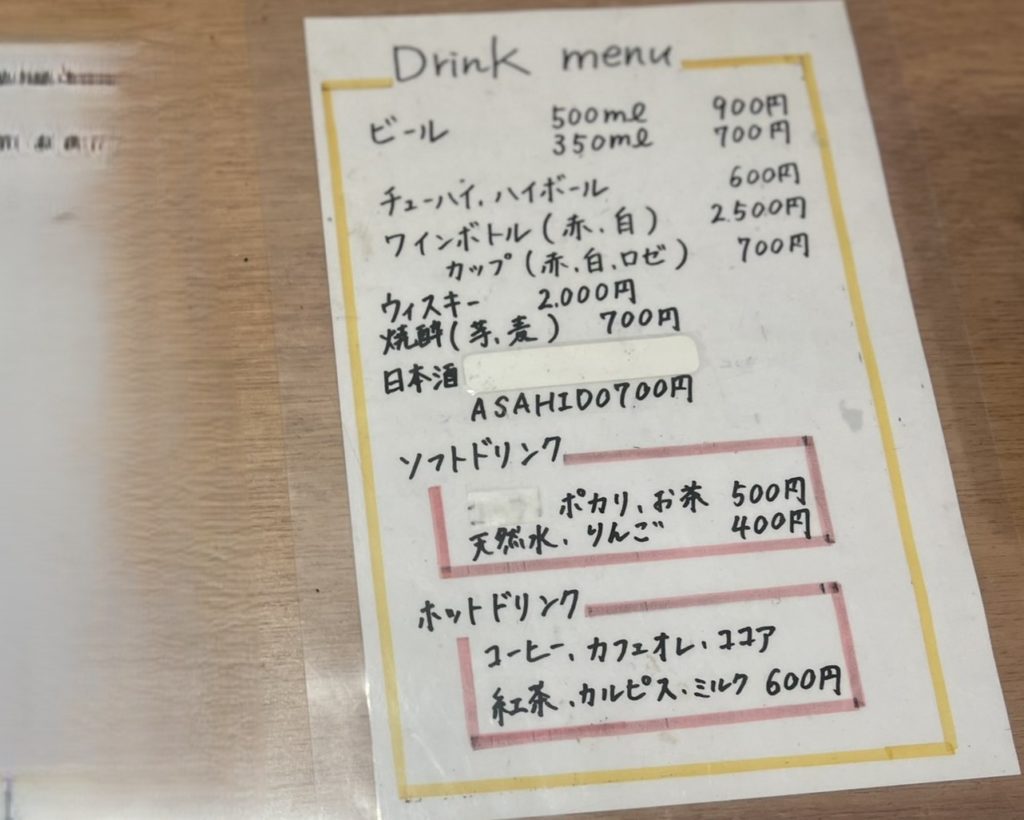 Drink menu
ビール 500ml 900円
350ml 700円
チューハイ、ハイボール 600円
ワインボトル(赤、白) 2,500円
カップ(赤、白、ロゼ) 700円
ウィスキー 2,000円
焼酎(芋、麦) 700円
日本酒
ASAHIDO700円
ソフトドリンク
ポカリ、お茶 500円
天然水、りんご 400円
ホットドリンク
コーヒー、カフェオレ、ココア
紅茶、カルピス、ミルク 600円